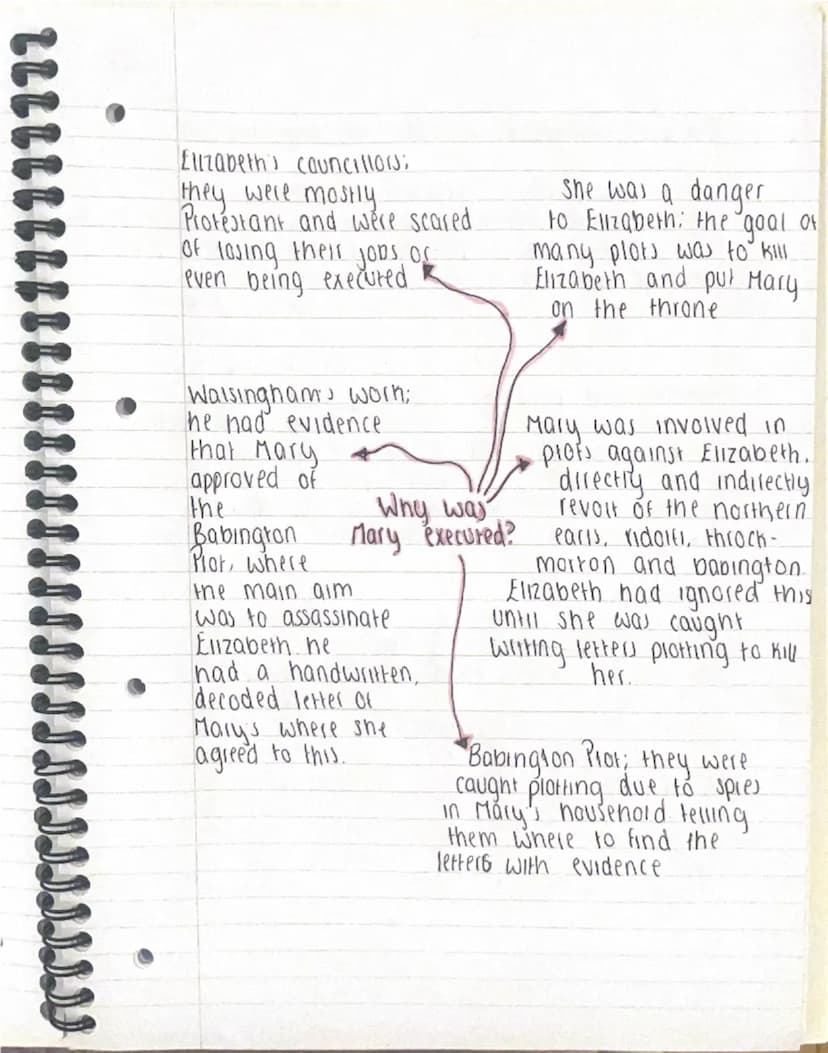 Elizabeth's councillors;
they were mostly
Protestant and were scared
of losing their jobs or
even being executed
She was a danger
to Elizabeth; the goal of
many plots was to kill
Elizabeth and put Mary
on the throne
Walsingham's work;
he had evidence
that Mary
approved of
the
Babington
Plot, where
the main aim
was to assassinate
Elizabeth. he
had a handwritten,
decoded letter of
Mary's where she
agreed to this.
Why was
Mary executed?
Mary was involved in
plots against Elizabeth.
directly and indirectly
revolt of the northern
earls, ridolfi, throck-
morton and babington.
Elizabeth had ignored this
until she was caught
writing letters plotting to kill
her.
Babington Plot; they were
caught plotting due to spies
in Mary's household telling
them where to find the
letters with evidence